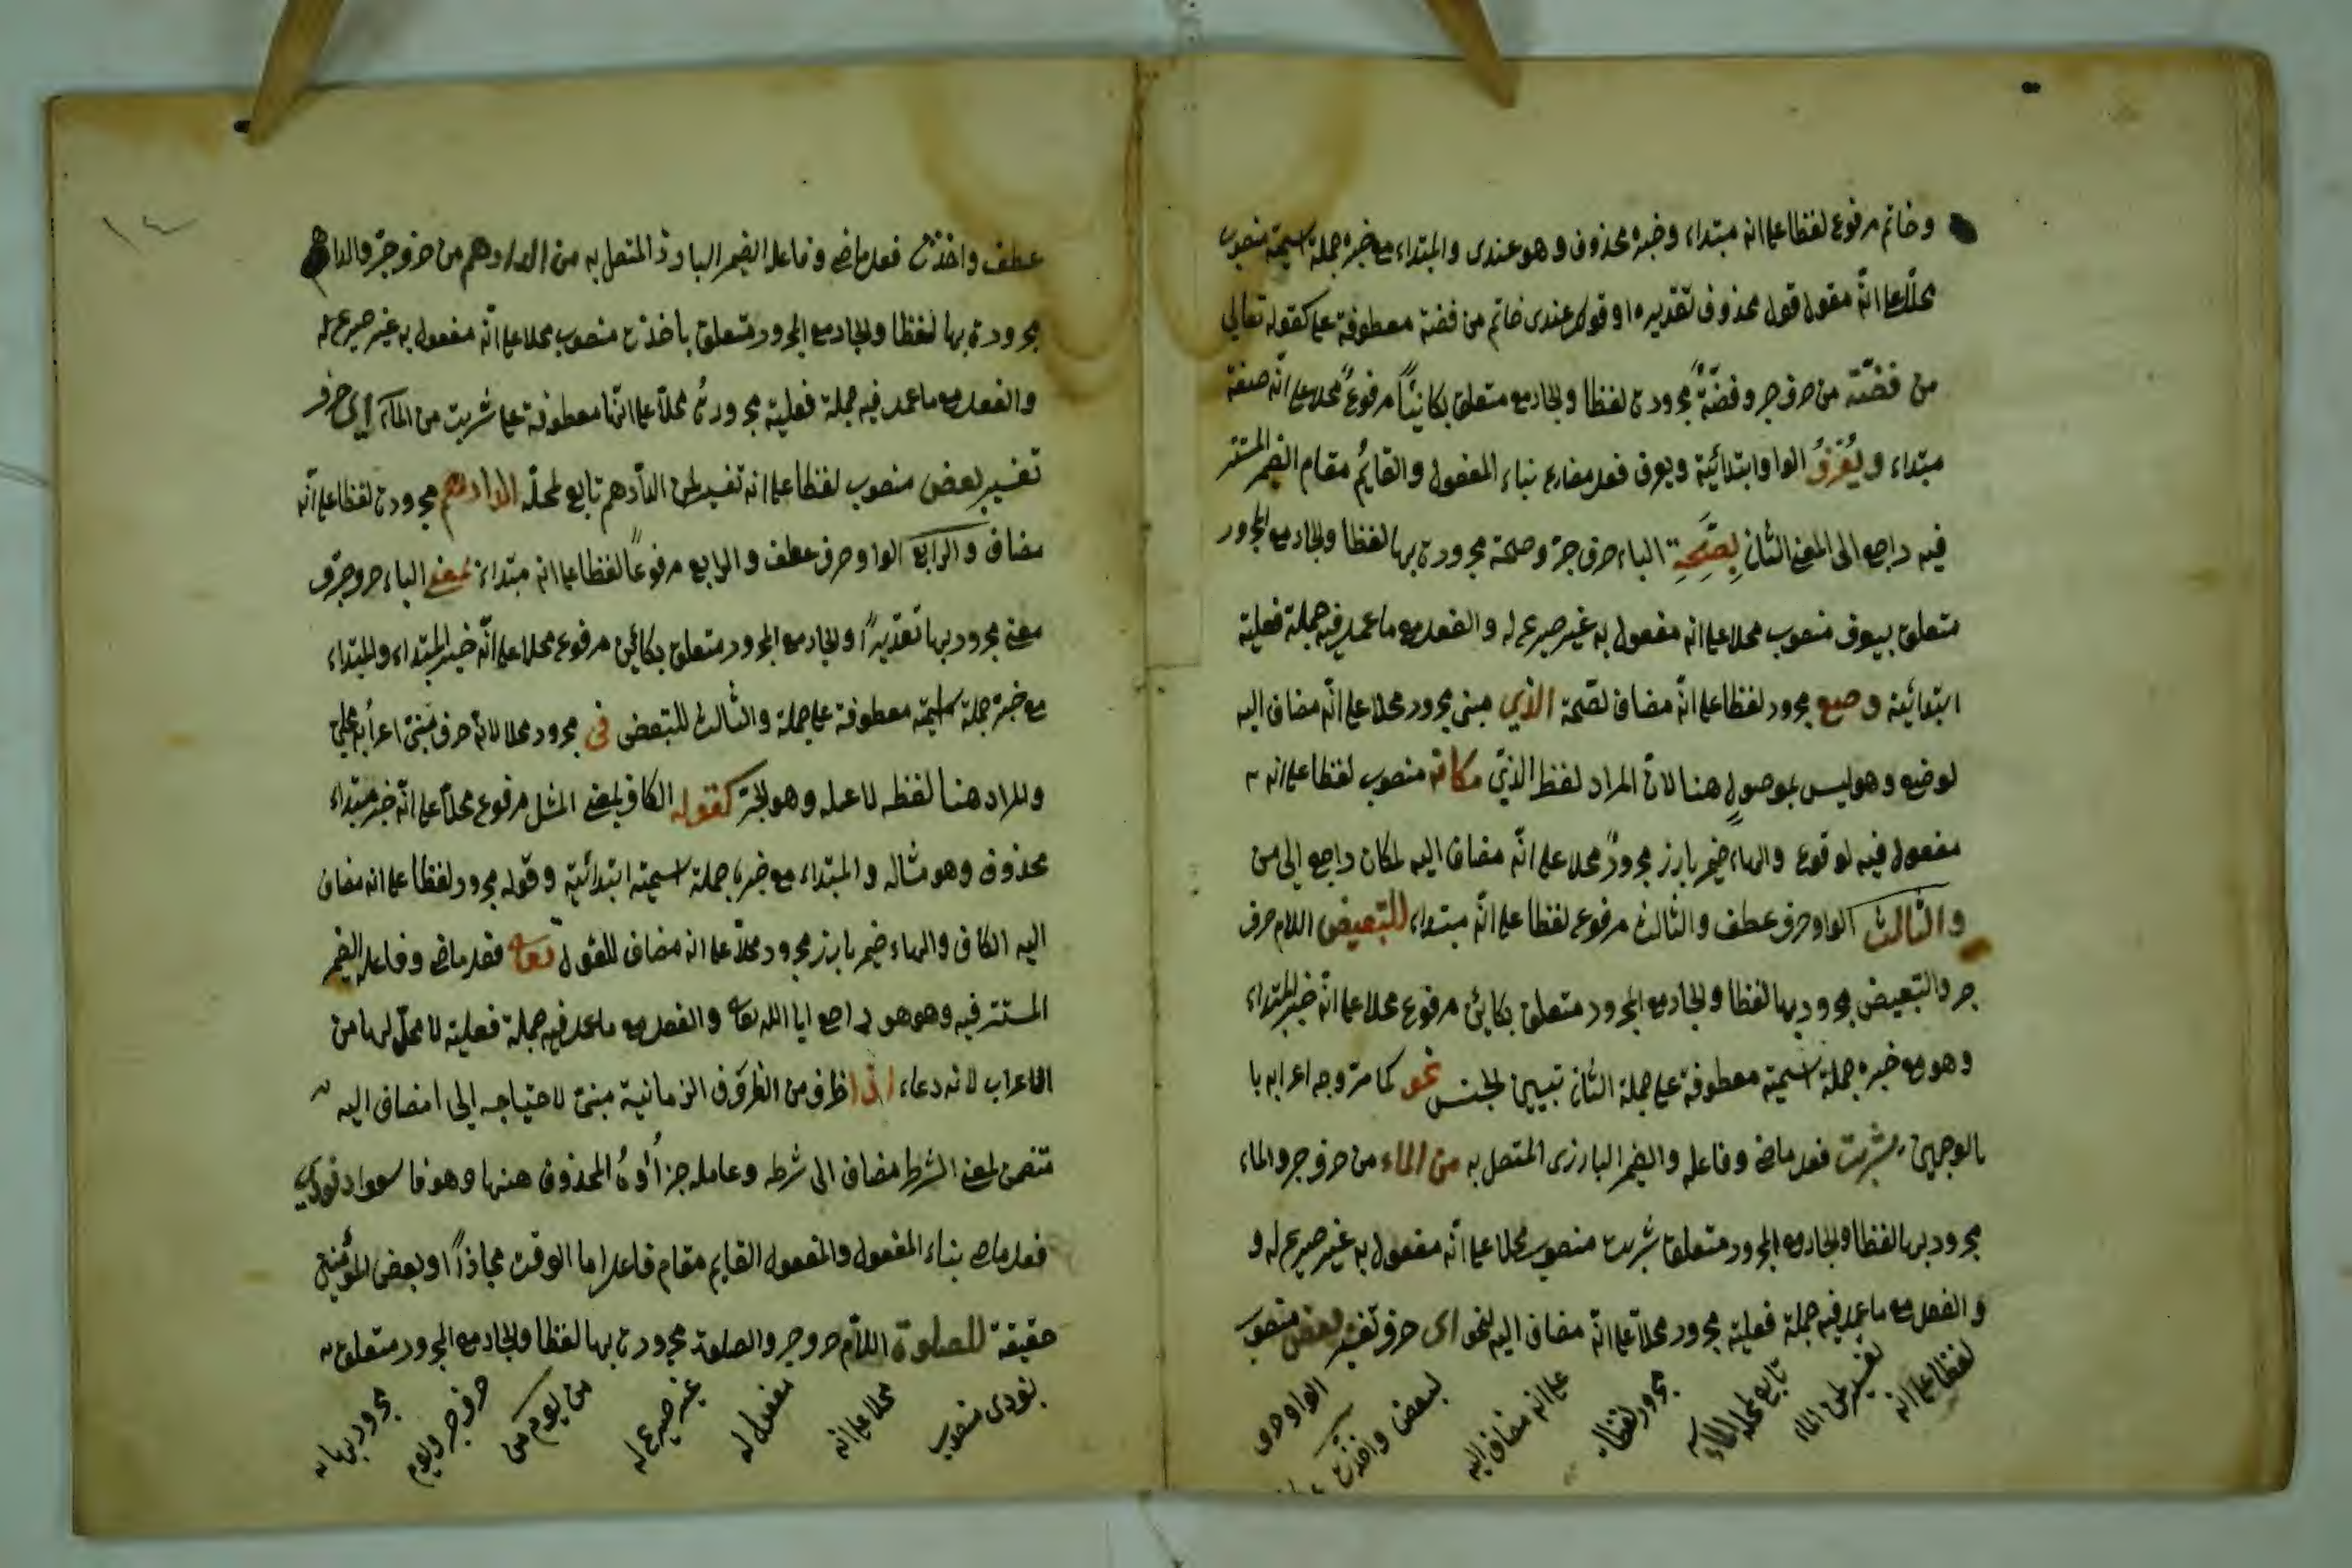 وخاتم مرفوع لفظا على انه مبتداء وخبره محذوف وهو عندى والمبتداء مع خبره جملة اسمية منصوب
محلا على انّه مقول قول محذوف تقديره او قولك عندى خاتم من فضة معطوفة على كقوله تعالى
من فضّة من حرف جر وفضّة مجرورة لفظا والجار مع متعلق بكائنا مرفوع محلا على انّه صفة
مبتداء ويُعْرَفُ الواو ابتدائية ويعرف فعل مضارع بناء المفعول والقايم مقام الضمير المستتر
فيه راجع الى المعنى الثانى بِصِحَّةِ الباء حرف جرّ وصحة مجرورة بها لفظا والجار مع المجرور
متعلق بيعرف منصوب محلا على انه مفعول به غير صريح له والفعل مع ما عمل فيه جملة فعلية
ابتدائية وضع مجرور لفظا على انّه مضاف لصّحة الذي مبنى مجرور محلا على انّه مضاف اليه
لوضع وهو ليس بموصول هنا لانّ المراد لفظ الذي مكانه منصوب لفظا على انه
مفعول فيه لوقوع والهاء ضمير بارز مجرور محلا على انّه مضاف اليه لمكان راجع الى من
والثالث الواو حرف عطف والثالث مرفوع لفظا على انّه مبتداء للتبعيض اللام حرف
جر والتبعيض مجرور بها لفظا والجار مع المجرور متعلق بكائن مرفوع محلا على انّه خبر المبتداء
وهو مع خبره جملة اسمية معطوفة على جملة الثانى تبيين لجنس نحو كما مرّ وجه اعرابه با
بالوجهين شربت فعل ماض وفاعله والضمير البارزى المتصل به من الماء من حرف جر والماء
مجرور بها لفظا والجار مع المجرور متعلق شربت منصوب محلا على انّه مفعول به غير صريح له و
والفعل مع ما عمل فيه جملة فعلية مجرور محلا على انّه مضاف اليه لنحو اى حرف تفسير بعض منصوب
لفظا على انه
تفسير لمن الماء
تابع لمحله الماء
مجرور لفظا
على انه مضاف اليه
لبعض واخذت
الواو حرف
عطف واخذت فعل ماض وفاعله الضمير البارز المتصل به من الدراهم من حرف جرّ والدراهم
مجرورة بها لفظا والجار مع المجرور متعلق باخذت منصوب محلا على انّه مفعول به غير صريح له
والفعل مع ما عمل فيه جملة فعلية مجرورة محلا على انّها معطوفة على شربت من الماء اى حرف
تفسير بعض منصوب لفظا على انه تفسير لمن الدّراهم تابع لمحلّه الدراهم مجرورة لفظا على انّه
مضاف والرابع الواو حرف عطف والرابع مرفوعا لفظا على انه مبتداء بمعنى الباء حرف جرّ
معنى مجرور بها تقديرا والجار مع المجرور متعلق بكائن مرفوع محلا على انّه خبر المبتداء والمبتداء
مع خبره جملة اسمية معطوفة على جملة والثالث للتبعض فى مجرور محلا لانّه حرف مبنىّ اعرابه محلى
والمراد هنا لفظه لا عمله وهو الجرّ كقوله الكاف بمعنى المثل مرفوع محلا على انّه خبر مبتداء
محذوف وهو مثاله والمبتداء مع خبره جملة اسمية ابتدائية وقوله مجرور لفظا على انه مضاف
اليه الكاف والهاء ضمير بارز مجرور محلا على انه مضاف للقول تعالى فعل ماض وفاعله الضمير
المستتر فيه وهو هو راجع ايا الله تعالى والفعل مع ما عمل فيه جملة فعلية لا محلّ لها من
الاعراب لانه دعاء اذا ظرف من الظروف الزمانية مبنى لاحتياجه الى مضاف اليه
تتضمن لمعنى الشرط مضاف الى شرطه وعامله جزاؤه المحذوف هنها وهو فاسعوا نودى
فعل ماض بناء المفعول والمفعول القايم مقام فاعله اما الوقت مجازا او بعض المؤمنين
حقيقة للصلوة اللام حرف جر والصلوة مجرورة بها لفظا والجار مع المجرور متعلق
بنودى منصوب
محلا على انه
مفعول له
غير صريح له
من يوم من
حرف جر ويوم
مجرور بها